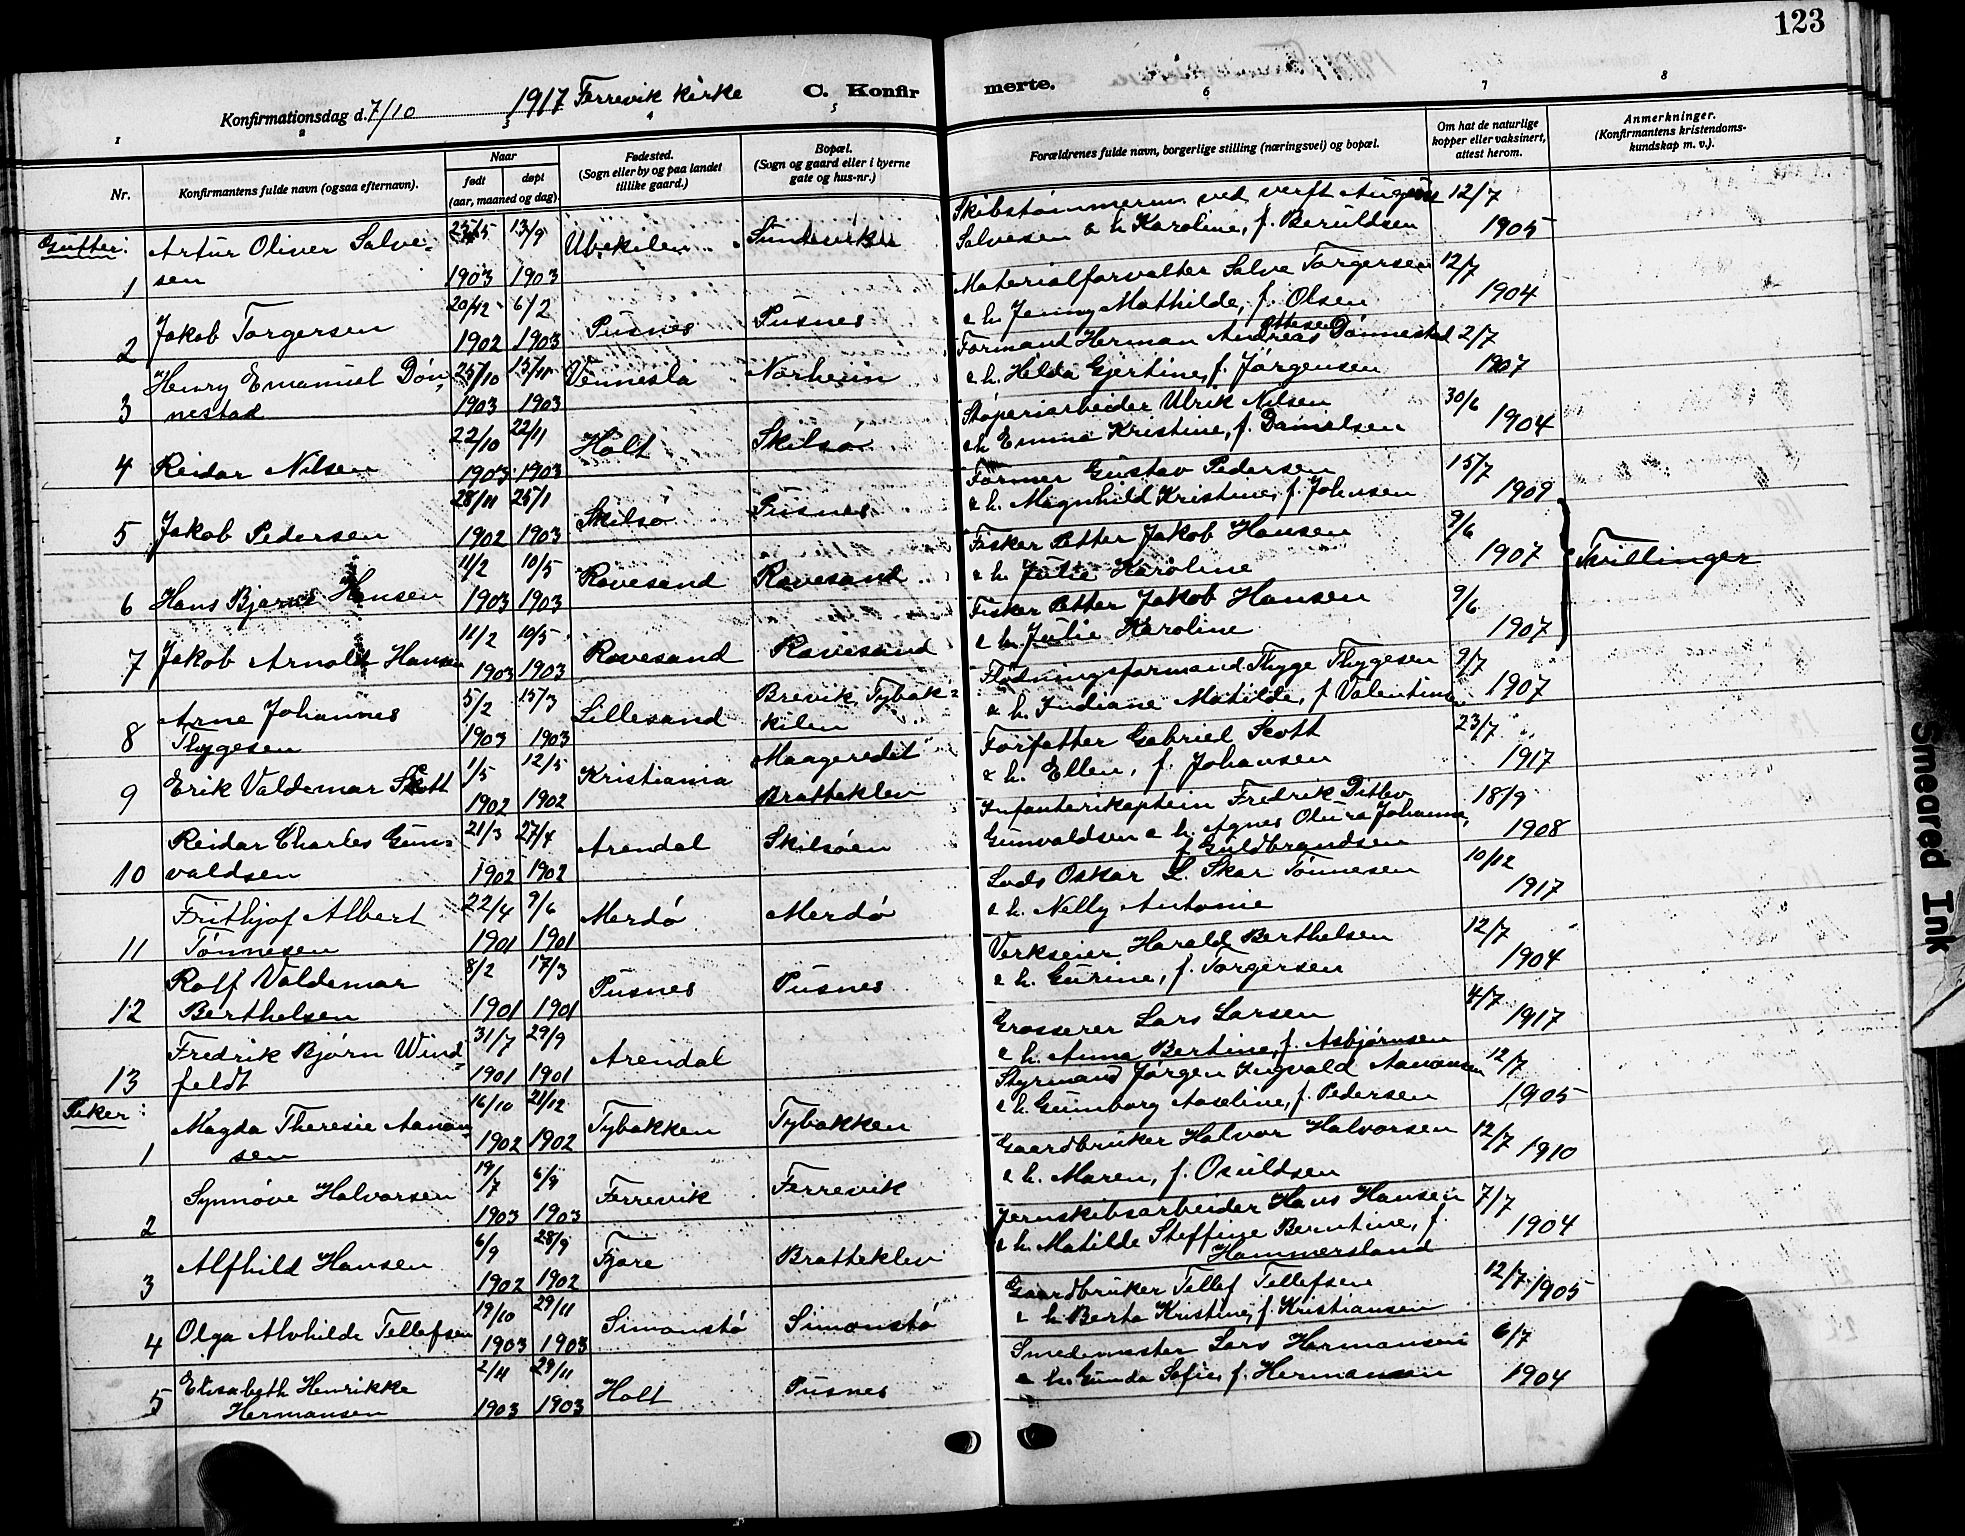 123
Konfirmationsdag d. 7/10 1917 Færrevik kirke C. Konfirmerte.
1 2 3 4 5 6 7 8
Nr.
Konfirmantens fulde navn (ogsaa efternavn).
Naar
født
døpt
(aar, maaned og dag)
Fødested.
(Sogn eller by og paa landet
tillike gaard.)
Bopæl.
(Sogn og gaard eller i byerne
gate og hus-nr.)
Forældrenes fulde navn, borgerlige stilling (næringsvei) og bopæl.
Om hat de naturlige
kopper eller vaksinert,
attest herom.
Anmerkninger.
(Konfirmantens kristendoms-
kundskap m. v.).
Gutter:
1 Artur Oliver Salve-
sen 1903 13/9 1903 Ubekilen
Skibstømmerm. ved verft August
Salvesen & h. Karoline, f. Beruldsen 12/7 1905
2 Jakob Torgersen 20/12 1902 6/2 1903 Pusnes Pusnes
Materialforvalter Salve Torgersen
& h. Jenny Mathilde, f. Olsen 12/7 1904
3 Henry Emanuel Døn-
nestad 25/10 1903 15/11 1903 Vennesla Norheim
Formand Herman Andreas Ottesen Dønnestad
& h. Hilda Gjertine, f. Jørgensen 2/7 1907
4 Reidar Nilsen 22/10 1903 22/11 1903 Holt Skilsø
Støperiarbeider Ulrik Nilsen
& h. Emma Kristine, f. Danielsen 30/6 1904
5 Jakob Pedersen 28/11 1902 25/1 1903 Skilsø Pusnes
Former Gustav Pedersen
& h. Magnhild Kristine, f. Johnsen 15/7 1909
6 Hans Bjarne Hansen 11/2 1903 10/5 1903 Rævesand Rævesand
Fisker Petter Jakob Hansen
& h. Julie Karoline 9/6 1907
Tvillinger
7 Jakob Arnold Hansen 11/2 1903 10/5 1903 Rævesand Rævesand
Fisker Petter Jakob Hansen
& h. Julie Karoline 9/6 1907
8 Arne Johannes
Thygesen 5/2 1903 15/3 1903 Lillesand Brevik Tybak-
kilen
Flødningsformand Thyge Thygesen
& h. Indiane Matilde, f. Valentinsen 9/7 1907
9 Erik Valdemar Skott 1/5 1902 12/5 1902 Kristiania Maageredet
Bratteklev
Forfatter Gabriel Scott
& h. Ellen, f. Johansen 23/7 1917
10 Reidar Charles Gun-
valdsen 21/3 1902 27/4 1902 Arendal Skilsøen
Infanterikaptein Fredrik Ditlev
Gunvaldsen & h. Agnes Johanna,
f. Guldbrandsen 18/9 1908
11 Frithjof Albert
Tønnesen 22/4 1901 9/6 1901 Merdø Merdø
Lods Oskar L. Skar Tønnesen
& h. Nelly Antonie 10/12 1917
12 Rolf Valdemar
Berthelsen 8/2 1901 17/3 1901 Pusnes Pusnes
Verkseier Harald Berthelsen
& h. Gurine, f. Torgersen 12/7 1904
13 Fredrik Bjørn Wind-
feldt 31/7 1901 29/9 1901 Arendal
Grosserer Lars Larsen
& h. Anna Bertine, f. Asbjørnsen 4/7 1917
Piker:
1 Magda Theresie Aanon-
sen 16/10 1902 21/12 1902 Tybakken Tybakken
Styrmand Jørgen Ingvald Aanonsen
& h. Gunborg Aaseline, f. Pedersen 12/7 1905
2 Synnøve Halvorsen 19/7 1903 6/9 1903 Færrevik Færrevik
Gaardbruker Halvor Halvorsen
& h. Maren, f. Osuldsen 12/7 1910
3 Alfhild Hansen 6/9 1902 28/9 1902 Fjære Bratteklev
Jernskibsarbeider Hans Hansen
& h. Matilde Steffine Berntine, f.
Hammersland 7/7 1904
4 Olga Alvhilde Tellefsen 19/10 1903 29/11 1903 Simonstø Simonstø
Gaardbruker Tellef Tellefsen
& h. Berta Kristine, f. Kristiansen 12/7 1905
5 Elisabeth Henrikke
Hermansen 2/11 1903 29/11 1903 Holt Pusnes
Smedemester Lars Hermansen
& h. Gunda Sofie, f. Hermansen 6/7 1904
Smeared Ink